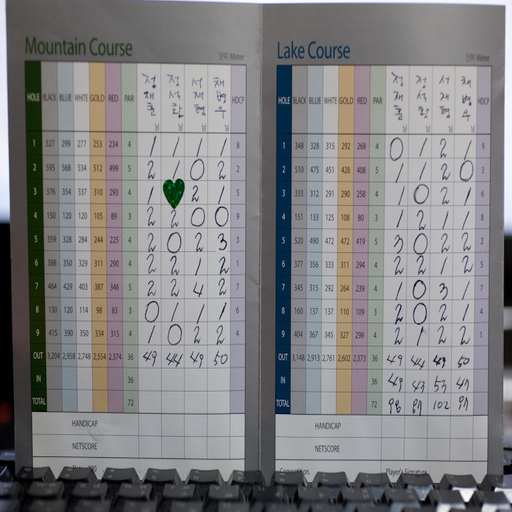 Mountain Course
단위 Meter
HOLE BLACK BLUE WHITE GOLD RED PAR HDCP
1 327 299 277 253 234 4 1 1 1 1 8
2 595 568 534 512 499 5 2 1 0 2 2
3 376 354 337 310 293 4 1 2 1
4 150 120 120 105 89 3 2 2 0 0 9
5 359 328 284 244 225 4 2 0 2 3
6 388 350 329 311 290 4 2 2 1 2
7 464 429 403 387 346 5 2 2 4 2
8 130 120 114 98 83 3 0 1 1 1
9 415 390 350 334 315 4 1 0 2 2 4
OUT 3,204 2,958 2,748 2,554 2,374 36 49 44 49 50
IN 36
TOTAL 72
HANDICAP
NETSCORE
Lake Course
단위 Meter
HOLE BLACK BLUE WHITE GOLD RED PAR HDCP
1 348 328 315 292 268 4 0 1 2 1 9
2 510 475 451 428 408 5 1 1 2 0
3 353 312 291 290 258 4 1 0 2 1 6
4 151 133 125 108 80 3 1 2 1 1 8
5 520 490 472 472 419 5 3 0 2 2
6 377 356 333 311 294 4 2 2 1 2
7 345 315 292 264 239 4 1 0 3 1
8 160 137 137 110 109 3 2 0 2 1
9 404 367 345 327 298 4 2 1 2 2
OUT 3,148 2,913 2,761 2,602 2,373 36 49 44 49 50
IN 36 49 43 53 47
TOTAL 72 98 87 102 97
HANDICAP
NETSCORE
Player's Signature